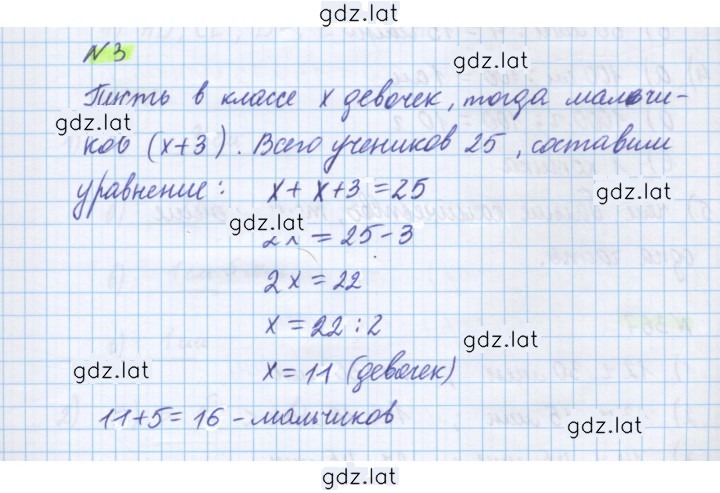 gdz.lat
№3
gdz.lat
Пусть в классе x девочек, тогда мальчи-
gdz.lat
ков (x+3). Всего учеников 25, составим
уравнение: x + x+3 = 25
gdz.lat
gdz.lat
2x = 25-3
2x = 22
x = 22 : 2
gdz.lat
x = 11 (девочек)
gdz.lat
11+5 = 16 - мальчиков
gdz.lat
gdz.lat